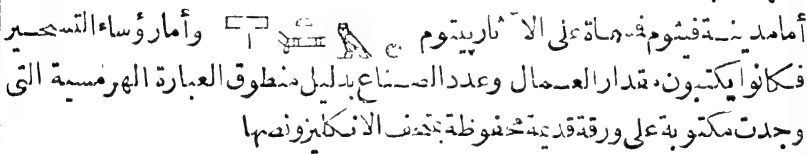 أما مدينة فيثوم فسماة على الآثار بيتوم وأما رؤساء التسخير
فكانوا يكتبون مقدار العمال وعدد الصناع بدليل منطوق العبارة الهرمسية التى
وجدت مكتوبة على ورقة قديمة محفوظة بتحف الانكليز ونصها